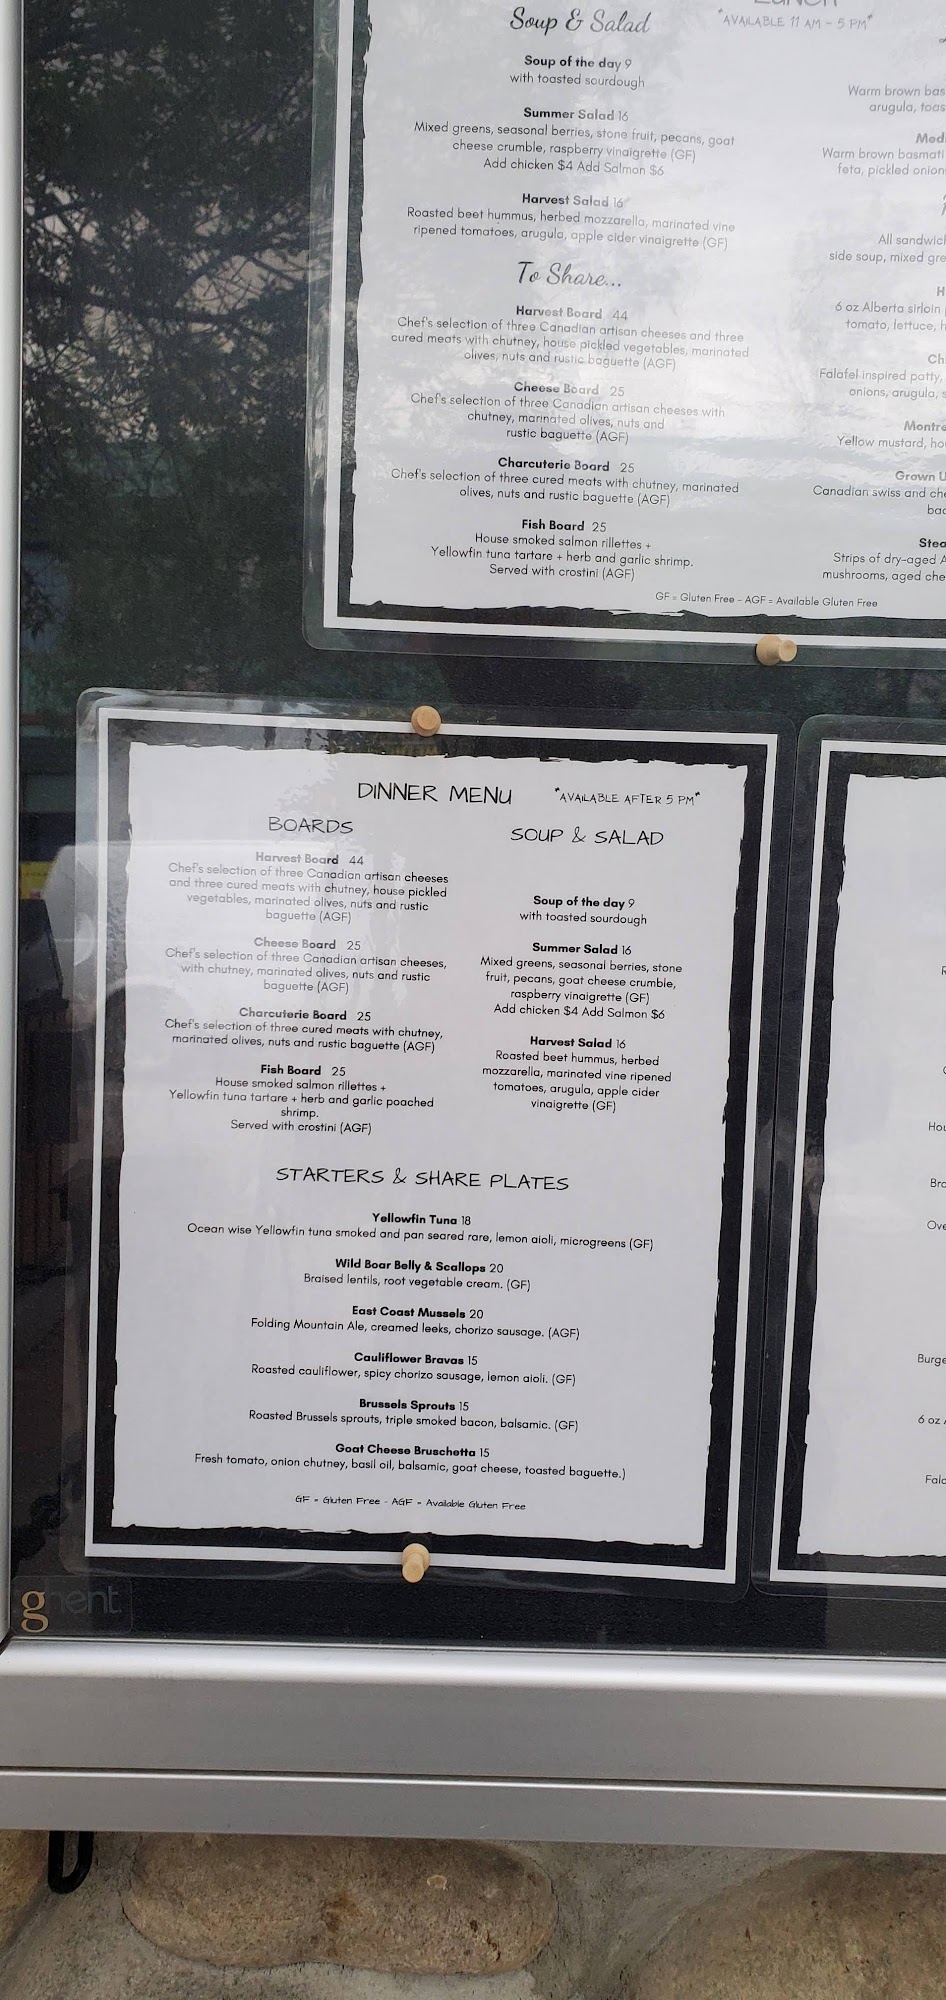 Lunch
*AVAILABLE 11 AM - 5 PM*
Soup & Salad
Soup of the day 9
with toasted sourdough
Summer Salad 16
Mixed greens, seasonal berries, stone fruit, pecans, goat
cheese crumble, raspberry vinaigrette (GF)
Add chicken $4 Add Salmon $6
Harvest Salad 16
Roasted beet hummus, herbed mozzarella, marinated vine
ripened tomatoes, arugula, apple cider vinaigrette (GF)
To Share...
Harvest Board 44
Chef's selection of three Canadian artisan cheeses and three
cured meats with chutney, house pickled vegetables, marinated
olives, nuts and rustic baguette (AGF)
Cheese Board 25
Chef's selection of three Canadian artisan cheeses with
chutney, marinated olives, nuts and
rustic baguette (AGF)
Charcuterie Board 25
Chef's selection of three cured meats with chutney, marinated
olives, nuts and rustic baguette (AGF)
Fish Board 25
House smoked salmon rillettes +
Yellowfin tuna tartare + herb and garlic shrimp.
Served with crostini (AGF)
Warm brown bas
arugula, toas
Med
Warm brown basmati
feta, pickled onion
All sandwic
side soup, mixed gre
H
6 oz Alberta sirloin
tomato, lettuce, h
Ch
Falafel inspired patty,
onions, arugula, s
Montre
Yellow mustard, ho
Grown U
Canadian swiss and che
bac
Stea
Strips of dry-aged A
mushrooms, aged che
GF = Gluten Free - AGF = Available Gluten Free
DINNER MENU
*AVAILABLE AFTER 5 PM*
BOARDS
Harvest Board 44
Chef's selection of three Canadian artisan cheeses
and three cured meats with chutney, house pickled
vegetables, marinated olives, nuts and rustic
baguette (AGF)
Cheese Board 25
Chef's selection of three Canadian artisan cheeses,
with chutney, marinated olives, nuts and rustic
baguette (AGF)
Charcuterie Board 25
Chef's selection of three cured meats with chutney,
marinated olives, nuts and rustic baguette (AGF)
Fish Board 25
House smoked salmon rillettes +
Yellowfin tuna tartare + herb and garlic poached
shrimp.
Served with crostini (AGF)
SOUP & SALAD
Soup of the day 9
with toasted sourdough
Summer Salad 16
Mixed greens, seasonal berries, stone
fruit, pecans, goat cheese crumble,
raspberry vinaigrette (GF)
Add chicken $4 Add Salmon $6
Harvest Salad 16
Roasted beet hummus, herbed
mozzarella, marinated vine ripened
tomatoes, arugula, apple cider
vinaigrette (GF)
STARTERS & SHARE PLATES
Yellowfin Tuna 18
Ocean wise Yellowfin tuna smoked and pan seared rare, lemon aioli, microgreens (GF)
Wild Boar Belly & Scallops 20
Braised lentils, root vegetable cream. (GF)
East Coast Mussels 20
Folding Mountain Ale, creamed leeks, chorizo sausage. (AGF)
Cauliflower Bravas 15
Roasted cauliflower, spicy chorizo sausage, lemon aioli. (GF)
Brussels Sprouts 15
Roasted Brussels sprouts, triple smoked bacon, balsamic. (GF)
Goat Cheese Bruschetta 15
Fresh tomato, onion chutney, basil oil, balsamic, goat cheese, toasted baguette.)
GF = Gluten Free - AGF = Available Gluten Free
Hou
Bra
Ove
Burge
6 oz
Fala